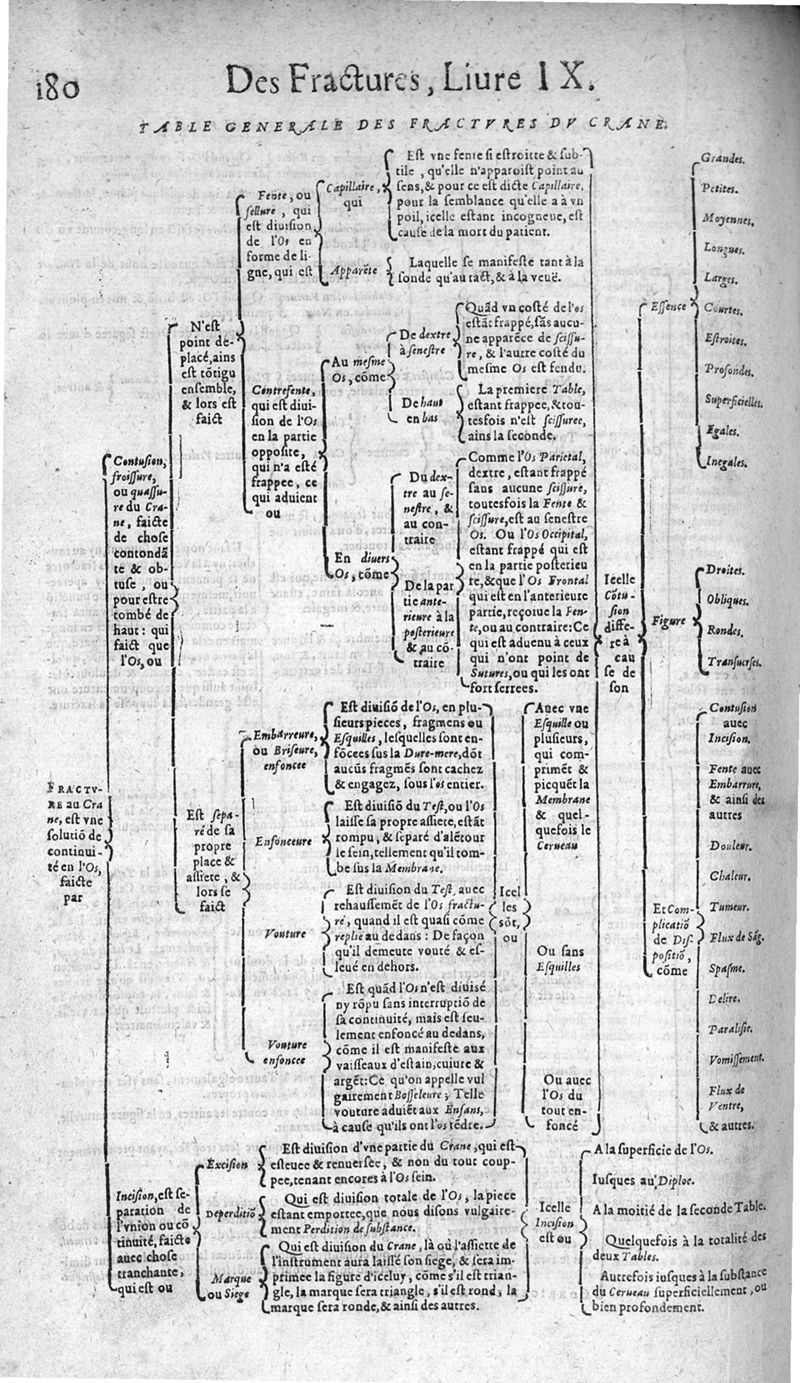 180
Des Fractures, Liure IX.
TABLE GENERALE DES FRACTVRES DV CRANE.
FRACTV-
RE au Cra
ne, est vne
solutiõ de
continui-
té en l'Os,
faicte
par
Contusion,
froissure,
ou quassu-
re du Cra-
ne, faicte
de chose
contondã
te & ob-
tuse, ou
pour estre
tombé de
haut : qui
faict que
l'Os, ou
N'est
point de-
placé, ains
est cõtigu
ensemble,
& lors est
faict
Fente, ou
sellure, qui
est diuision
de l'Os en
forme de li-
gne, qui est
Capillaire,
qui
Est vne fente si estroitte & sub-
tile, qu'elle n'apparoist point au
sens, & pour ce est dicte Capillaire,
pour la semblance qu'elle a à vn
poil, icelle estant incogneue, est
cause de la mort du patient.
Apparẽte
Laquelle se manifeste tant à la
sonde qu'au tact, & à la veuë.
Contrefente,
qui est diui-
sion de l'Os
en la partie
opposite,
qui n'a esté
frappee, ce
qui aduient
ou
Au mesme
Os, cõme
De dextre
à senestre
Quãd vn costé de l'os
estãt frappé, sãs aucu-
ne apparẽce de scissu-
re, & l'autre costé du
mesme Os est fendu.
De haut
en bas
La premiere Table,
estant frappee, & tou-
tesfois n'est scissuree,
ains la seconde.
En diuers
Os, cõme
Du dex-
tre au se-
nestre, &
au con-
traire
Comme l'Os Parietal,
dextre, estant frappé
sans aucune scissure,
toutesfois la Fente &
scissure, est au senestre
Os. Ou l'Os Occipital,
estant frappé qui est
en la partie posterieu
re, & que l'Os Frontal
qui est en l'anterieure
partie, reçoiue la Fen-
te, ou au contraire: Ce
qui est aduenu à ceux
qui n'ont point de
Sutures, ou qui les ont
fort serrees.
De la par
tie ante-
rieure à la
posterieure
& au cõ-
traire
Est sepa-
ré de sa
propre
place &
assiete, &
lors se
faict
Embarreure,
ou Briseure,
enfoncee
Est diuisiõ de l'Os, en plu-
sieurs pieces, fragmens ou
Esquilles, lesquelles sont en-
fõcees sus la Dure-mere, dõt
aucũs fragmẽs sont cachez
& engagez, sous l'os entier.
Enfonceure
Est diuisiõ du Test, ou l'Os
laisse sa propre assiete, estãt
rompu, & separé d'alẽtour
le sein, tellement qu'il tom-
be sus la Membrane.
Vouture
Est diuision du Test, auec
rehaussemẽt de l'Os fractu-
ré, quand il est quasi cõme
replié au dedans : De façon
qu'il demeure vouté & es-
leué en dehors.
Vouture
enfoncee
Est quãd l'Os n'est diuisé
ny rõpu sans interruptiõ de
sa continuité, mais est seu-
lement enfoncé au dedans,
cõme il est manifeste aux
vaisseaux d'estain, cuiure &
argẽt: Ce qu'on appelle vul
gairement Bosseleure ; Telle
vouture aduiẽt aux Enfans,
à cause qu'ils ont l'os tẽdre.
Icel
les
sõt,
ou
Auec vne
Esquille ou
plusieurs,
qui com-
primẽt &
picquẽt la
Membrane
& quel-
quefois le
Cerueau
Ou sans
Esquilles
Ou auec
l'Os du
tout en-
foncé
Icelle
Cõtu-
sion
diffe-
re à
cau
se de
son
Essence
Grandes.
Petites.
Moyennes.
Longues.
Larges.
Courtes.
Estroites.
Profondes.
Superficielles.
Egales.
Inegales.
Figure
Droites.
Obliques.
Rondes.
Transuerses.
Et Com-
plicatiõ
de Dis-
positiõ,
cõme
Contusion
auec
Incision.
Fente auec
Embarrure,
& ainsi des
autres
Douleur.
Chaleur.
Tumeur.
Flux de Sãg.
Spasme.
Delire.
Paralisie.
Vomissement.
Flux de
Ventre,
& autres.
Incision, est se-
paration de
l'vnion ou cõ
tinuité, faicte
auec chose
tranchante,
qui est ou
Excision
Est diuision d'vne partie du Crane, qui est
esleuee & renuersee, & non du tout coup-
pee, tenant encores à l'Os sein.
Deperditiõ
Qui est diuision totale de l'Os, la piece
estant emportee, que nous disons vulgaire-
ment Perdition de substance.
Marque
ou Siege
Qui est diuision du Crane, là où l'assiette de
l'instrument aura laissé son siege, & sera im-
primee la figure d'iceluy, cõme s'il est trian-
gle, la marque sera triangle, s'il est rond, la
marque sera ronde, & ainsi des autres.
Icelle
Incision
est ou
A la superficie de l'Os.
Iusques au Diploe.
A la moitié de la seconde Table.
Quelquefois à la totalité des
deux Tables.
Autrefois iusques à la substance
du Cerueau superficiellement, ou
bien profondement.